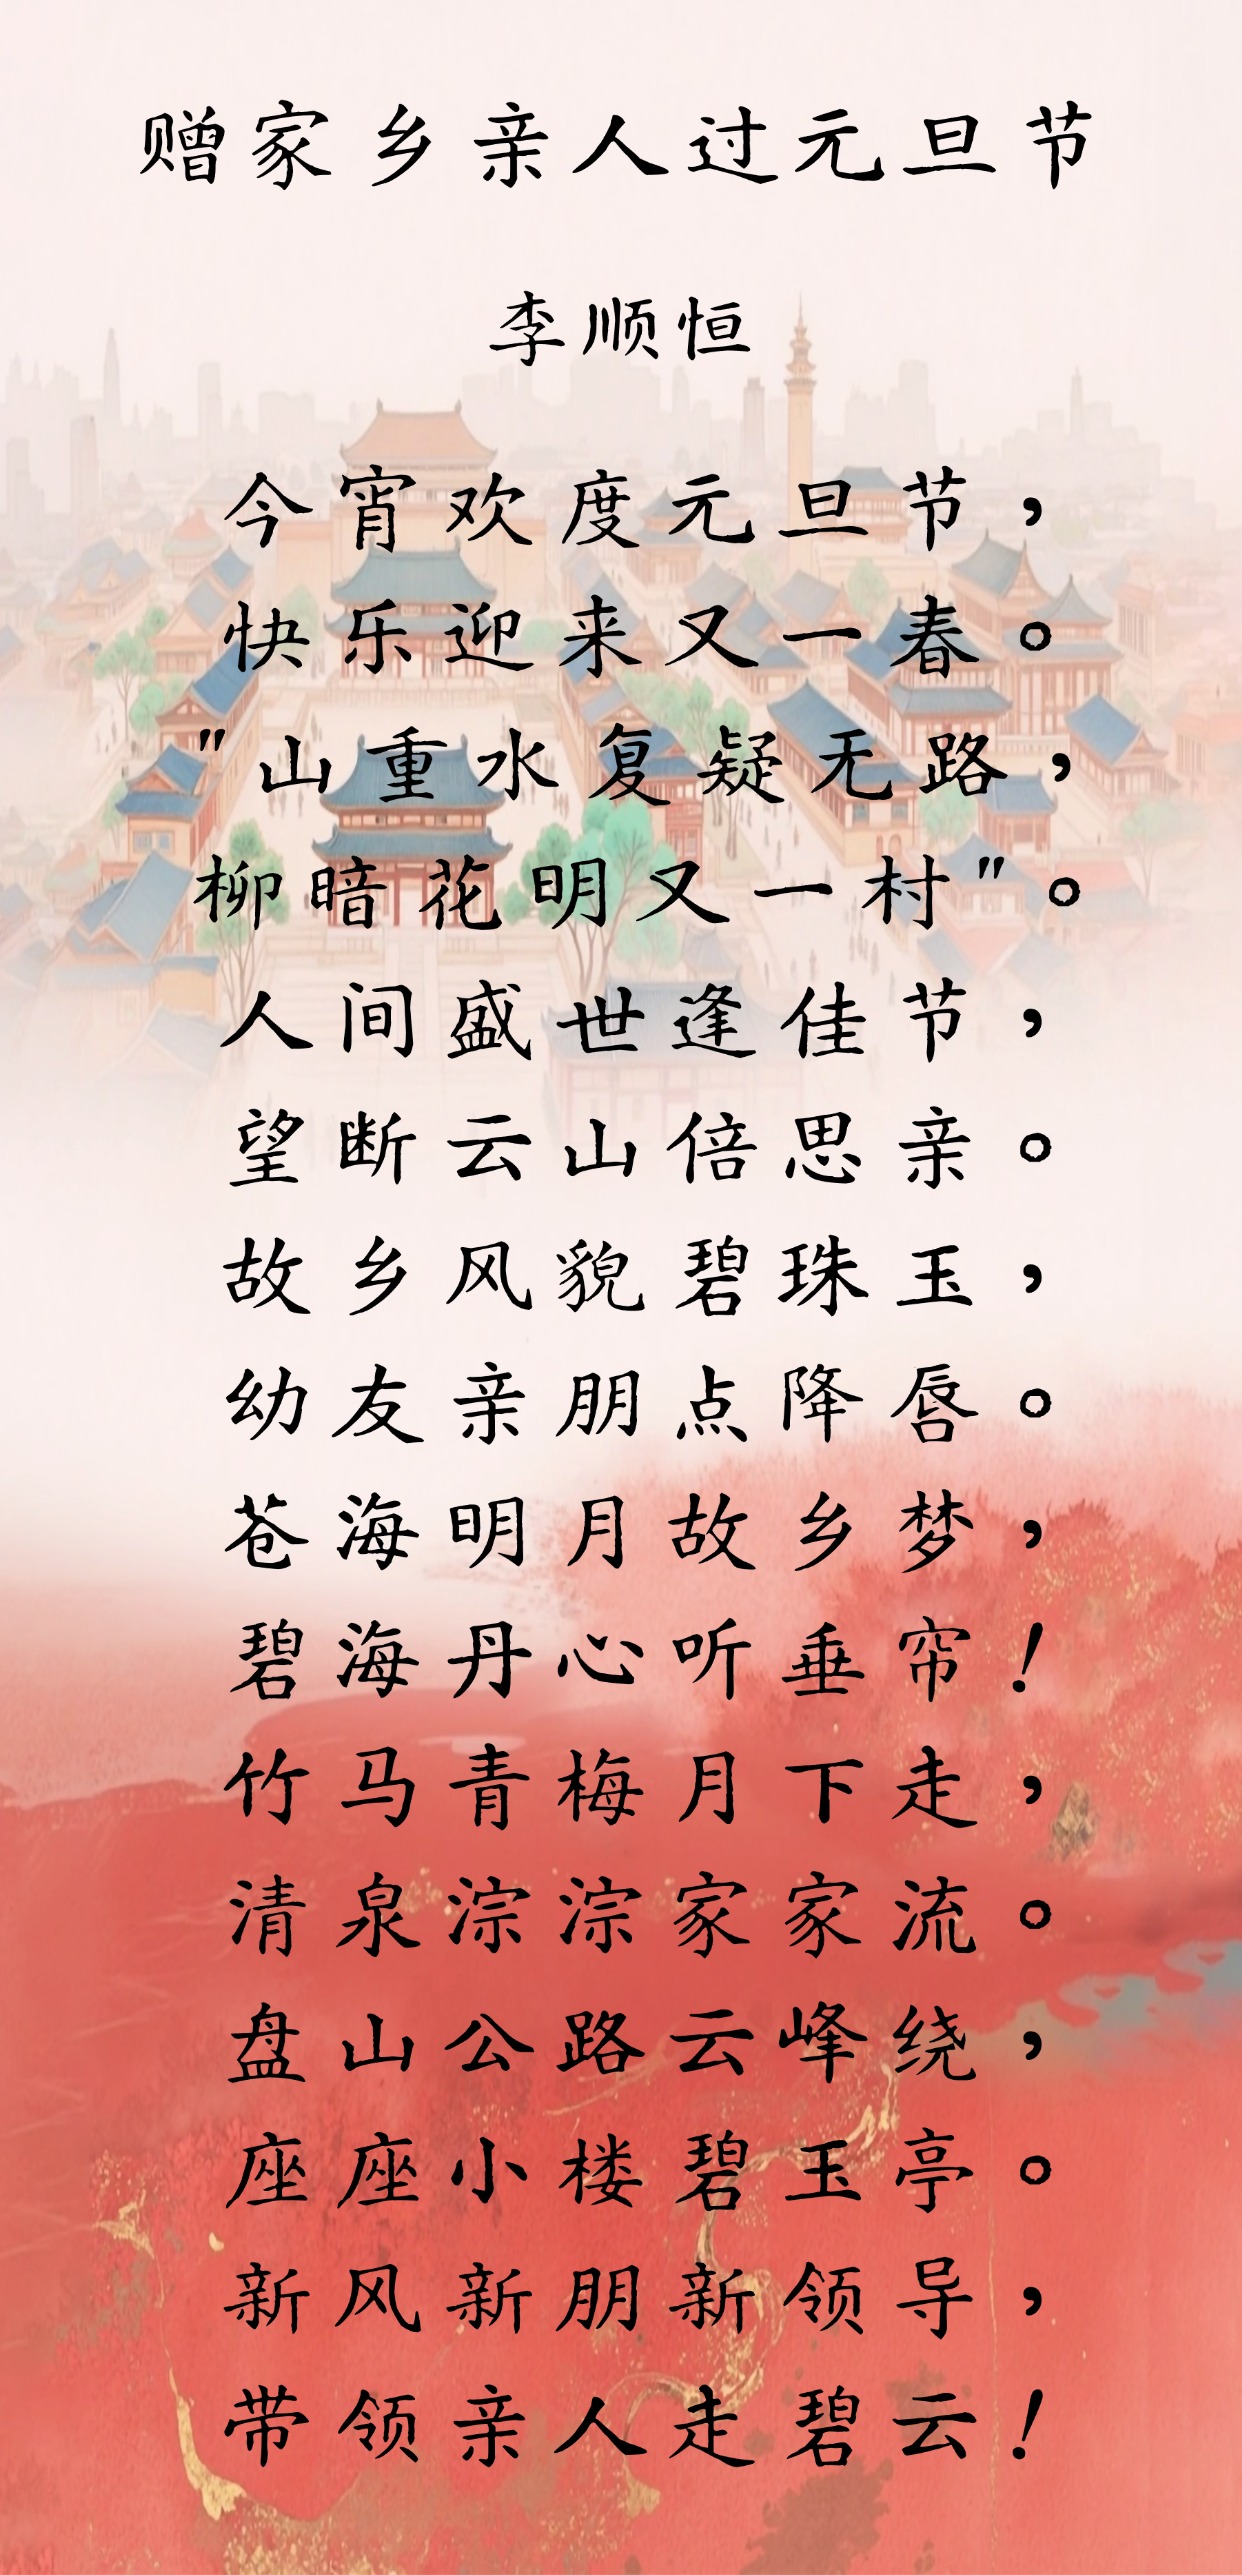 赠家乡亲人过元旦节
李顺恒
今宵欢度元旦节，
快乐迎来又一春。
"山重水复疑无路，
柳暗花明又一村"。
人间盛世逢佳节，
望断云山倍思亲。
故乡风貌碧珠玉，
幼友亲朋点降唇。
苍海明月故乡梦，
碧海丹心听垂帘！
竹马青梅月下走，
清泉淙淙家家流。
盘山公路云峰绕，
座座小楼碧玉亭。
新风新朋新领导，
带领亲人走碧云！